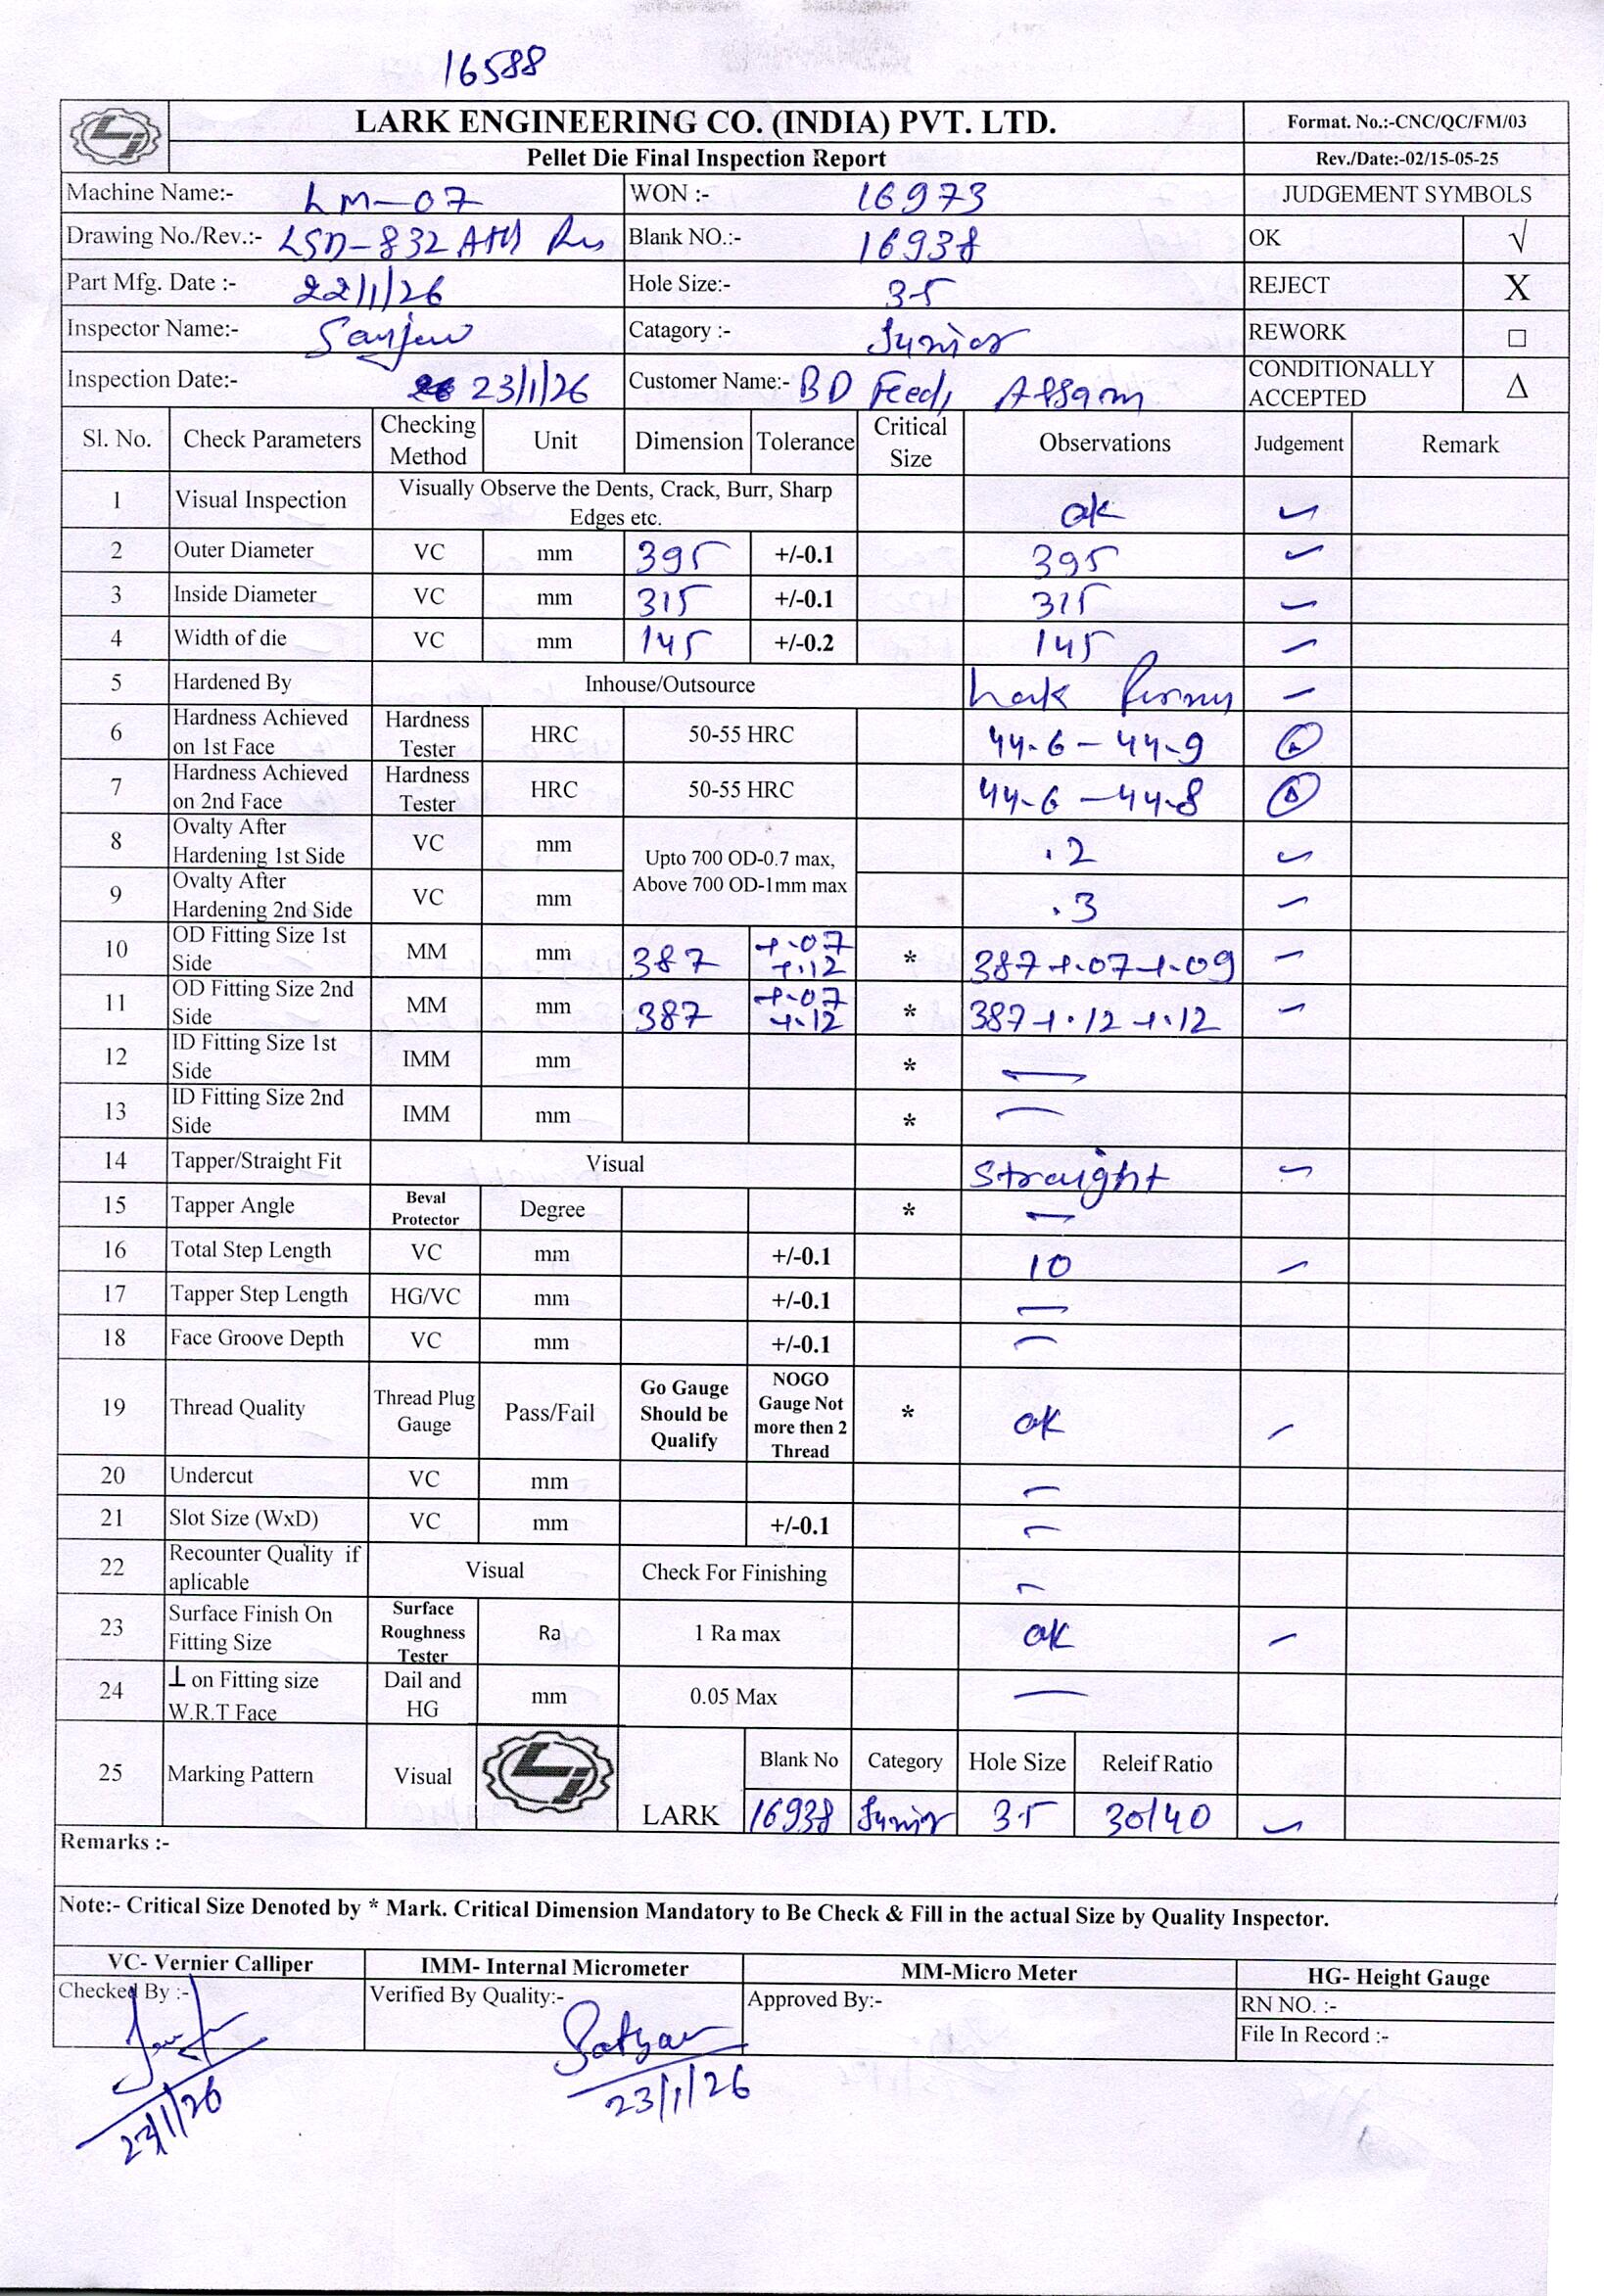 16588
LARK ENGINEERING CO. (INDIA) PVT. LTD.
Format. No.:-CNC/QC/FM/03
Pellet Die Final Inspection Report
Rev./Date:-02/15-05-25
Machine Name:- LM-07 WON :- 16973 JUDGEMENT SYMBOLS
Drawing No./Rev.:- LSD-832 Blank NO.:- 16938 OK √
Part Mfg. Date :- 22/1/26 Hole Size:- 3.5 REJECT X
Inspector Name:- Sanjeev Catagory :- Junior REWORK □
Inspection Date:- 23/1/26 Customer Name:- BD Feed, Assam CONDITIONALLY ACCEPTED Δ
Sl. No. Check Parameters Checking Method Unit Dimension Tolerance Critical Size Observations Judgement Remark
1 Visual Inspection Visually Observe the Dents, Crack, Burr, Sharp Edges etc. ok ✓
2 Outer Diameter VC mm 395 +/-0.1 395 ✓
3 Inside Diameter VC mm 315 +/-0.1 315 ✓
4 Width of die VC mm 145 +/-0.2 145 ✓
5 Hardened By Inhouse/Outsource Lark ✓
6 Hardness Achieved on 1st Face Hardness Tester HRC 50-55 HRC 44.6-44.9 Δ
7 Hardness Achieved on 2nd Face Hardness Tester HRC 50-55 HRC 44.6-44.8 Δ
8 Ovalty After Hardening 1st Side VC mm Upto 700 OD-0.7 max, Above 700 OD-1mm max .2 ✓
9 Ovalty After Hardening 2nd Side VC mm .3 ✓
10 OD Fitting Size 1st Side MM mm 387 +.07 +.12 * 387+.07+.09 ✓
11 OD Fitting Size 2nd Side MM mm 387 +.07 +.12 * 387+.12+.12 ✓
12 ID Fitting Size 1st Side IMM mm * —
13 ID Fitting Size 2nd Side IMM mm * —
14 Tapper/Straight Fit Visual Straight ✓
15 Tapper Angle Beval Protector Degree * —
16 Total Step Length VC mm +/-0.1 10 ✓
17 Tapper Step Length HG/VC mm +/-0.1 —
18 Face Groove Depth VC mm +/-0.1 —
19 Thread Quality Thread Plug Gauge Pass/Fail Go Gauge Should be Qualify NOGO Gauge Not more then 2 Thread * ok ✓
20 Undercut VC mm —
21 Slot Size (WxD) VC mm +/-0.1 —
22 Recounter Quality if aplicable Visual Check For Finishing —
23 Surface Finish On Fitting Size Surface Roughness Tester Ra 1 Ra max ok ✓
24 ⊥ on Fitting size W.R.T Face Dail and HG mm 0.05 Max —
25 Marking Pattern Visual LARK Blank No Category Hole Size Releif Ratio
16938 Junior 3.5 30/40 ✓
Remarks :-
Note:- Critical Size Denoted by * Mark. Critical Dimension Mandatory to Be Check & Fill in the actual Size by Quality Inspector.
VC- Vernier Calliper IMM- Internal Micrometer MM-Micro Meter HG- Height Gauge
Checked By :- Verified By Quality:- Approved By:- RN NO. :-
File In Record :-
Satyam
23/1/26
23/1/26